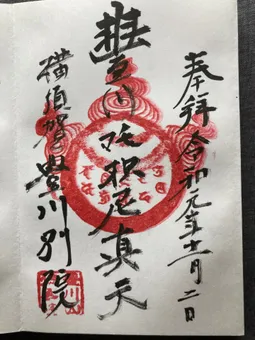 奉拝 令和元年十一月二日
豊川吒枳尼真天
横須賀豊川別院